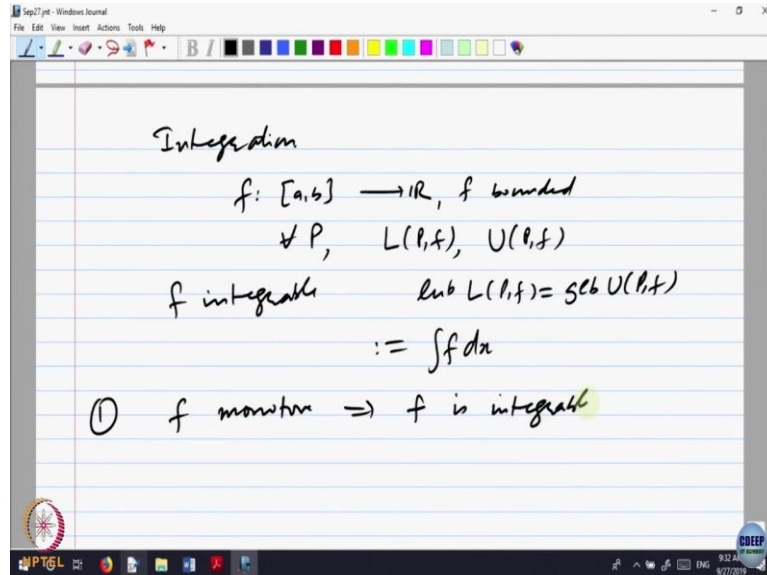 Sep27.jnt - Windows Journal
File Edit View Insert Actions Tools Help
B I
Integration
f: [a,b] ⟶ ℝ, f bounded
∀ P, L(P,f), U(P,f)
f integrable lub L(P,f) = glb U(P,f)
:= ∫f dx
① f monotone ⇒ f is integrable
NPTEL
CDEEP
IIT BOMBAY
ENG
9:32 AM
9/27/2019